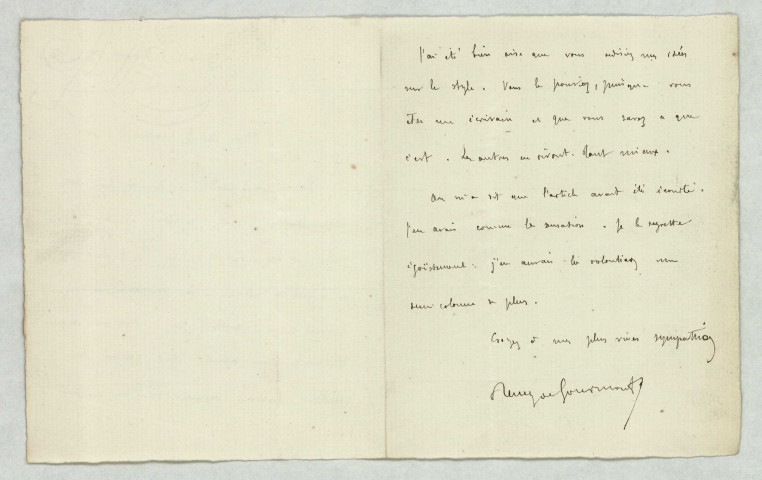 J'ai été bien aise que vous disiez mes idées
sur le style. Vous le pouviez, puisque vous
êtes un écrivain et que vous savez ce que
c'est. Les autres en riront. Tant mieux.
On m'a dit que l'article avait été écourté.
J'en avais comme la sensation. Je le regrette
égoïstement: j'en aurais lu volontiers une
demi colonne de plus.
Croyez à mes plus vives sympathies
Remy de Gourmont